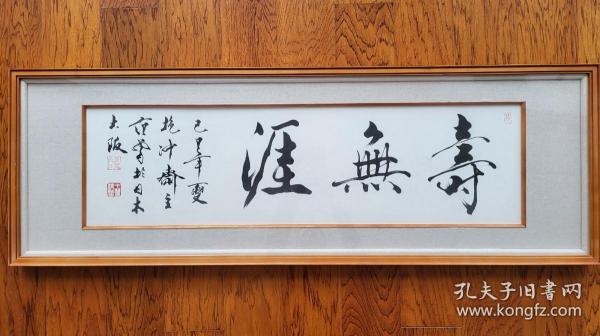 壽無涯
己卯年夏
抱沖齋主
范曾於日本
大阪
孔夫子旧书网
www.kongfz.com